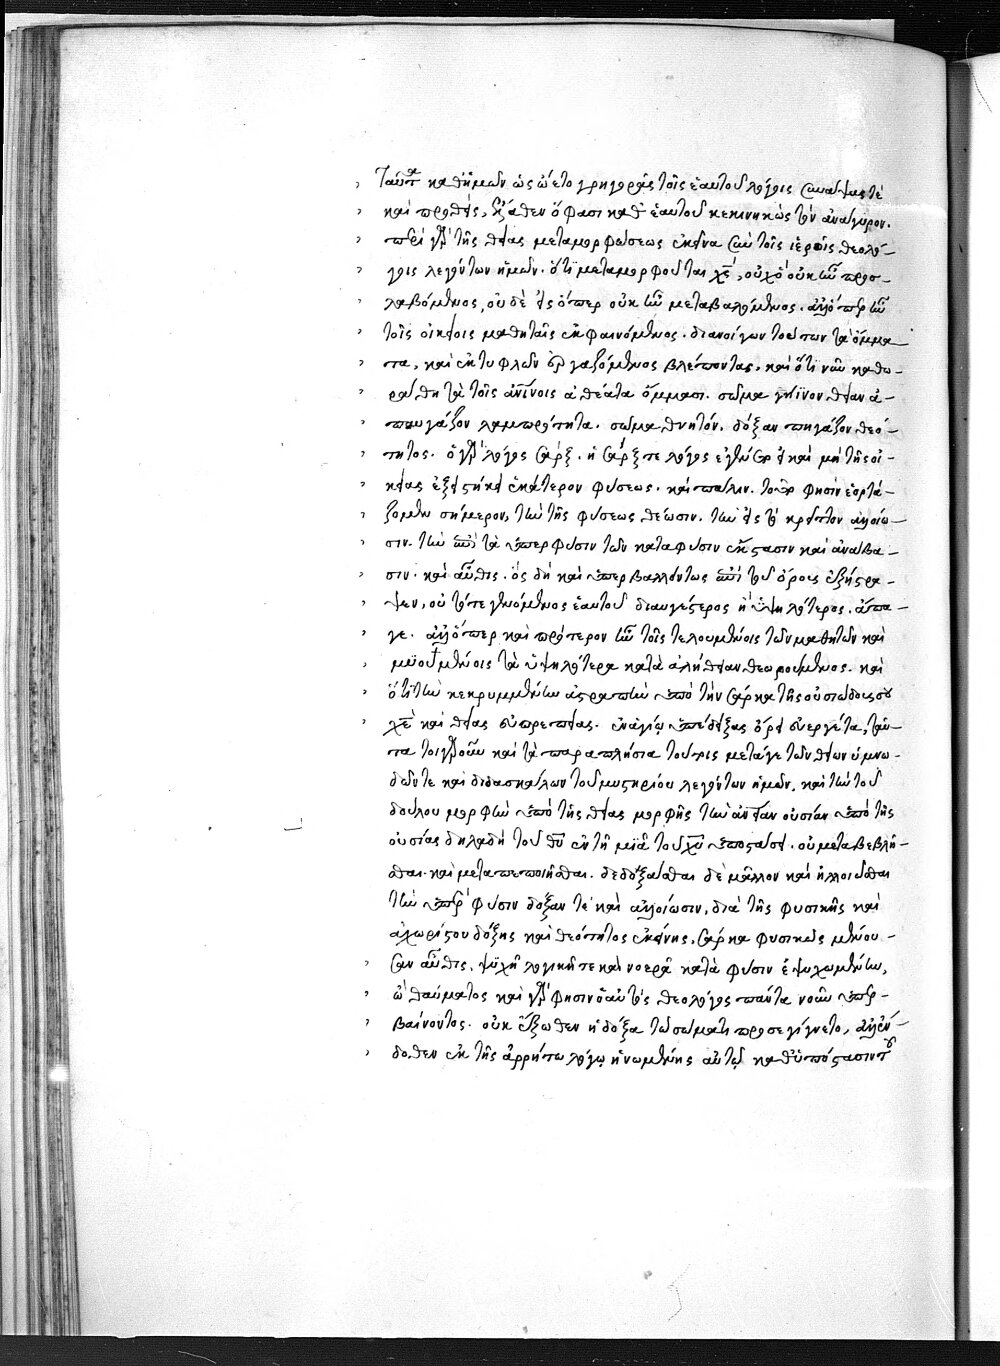 ταῦτα καθ' ἡμῶν ὡς ᾤετο γρηγορᾶς τοῖς ἑαυτοῦ λόγοις συνάψας τὲ
καὶ προθεὶς, ἐξῆλθεν ὅ φασι καθ' ἑαυτοῦ κεκινηκὼς τὸν ἀνάγυρον.
περὶ γὰρ τῆς θείας μεταμορφώσεως ἐκεῖνα σὺν τοῖς ἱεροῖς θεολό-
γοις λεγόντων ἡμῶν. ὅτι μεταμορφοῦται χς, οὐχ ὃ οὐκ ἦν προσ-
λαβόμενος, οὐδὲ εἰς ὅπερ οὐκ ἦν μεταβαλόμενος. ἀλλ' ὅπερ ἦν
τοῖς οἰκείοις μαθηταῖς ἐκφαινόμενος. διανοίγων τούτων τὰ ὄμμα-
τα, καὶ ἐκ τυφλῶν ἐργαζόμενος βλέποντας. καὶ ὅτι νῦν καθω-
ράθη τὰ τοῖς ἀνίνοις ἀθέατα ὄμμασι. σῶμα γήϊνον θείαν ἀ-
παυγάζον λαμπρότητα. σῶμα θνητόν. δόξαν πηγάζον θεό-
τητος. ὁ γὰρ λόγος σὰρξ. ἡ σάρξ τε λόγος ἐγένετο εἰ καὶ μὴ τῆς οἰ-
κείας ἐξειστήκει ἑκάτερον φύσεως. καὶ πάλιν. τοῦτο φησὶν ἑορτά-
ζομεν σήμερον, τὴν τῆς φύσεως θέωσιν. τὴν εἰς τὸ κρεῖττον ἀλλοίω-
σιν. τὴν ἐπὶ τὰ ὑπερ φύσιν τῶν κατα φύσιν ἔκστασιν καὶ ἀνάβα-
σιν. καὶ αὖθις. ὃς δὴ καὶ ὑπερβαλλόντως ἐπὶ τοῦ ὄρους ἐξήστρα-
ψεν, οὐ τότε γενόμενος ἑαυτοῦ διαυγέστερος ἢ ὑψηλότερος. ἄπα-
γε. ἀλλ' ὅπερ καὶ πρότερον ἦν τοῖς τελουμένοις τῶν μαθητῶν καὶ
μυουμένοις τὰ ὑψηλότερα κατὰ ἀλήθειαν θεωρούμενος. καὶ
ὅτι τὴν κεκρυμμένην ἀστραπὴν ὑπὸ τὴν σάρκα τῆς οὐσιώδους σου
χὲ καὶ θείας εὐπρεπείας. ἐν ἁγίῳ ὑπέδειξας ὄρει εὐεργέτα, ταῦ-
τα τοιγαροῦν καὶ τὰ παραπλήσια τούτοις μετάγε τῶν θείων ὑμνω-
δῶν τε καὶ διδασκάλων τοῦ μυστηρίου λεγόντων ἡμῶν. καὶ τὴν τοῦ
δούλου μορφὴν ὑπὸ τῆς θείας μορφῆς τὴν ἀνείαν οὐσίαν ὑπὸ τῆς
οὐσίας δηλαδὴ τοῦ θυ ἐν τῆ μιᾶ τοῦ χυ ὑποστάσει. οὐ μεταβεβλῆ-
σθαι. καὶ μεταπεποιῆσθαι. δεδοξάσθαι δὲ μᾶλλον καὶ ἠλλοιῶσθαι
τὴν ὑπὲρ φύσιν δόξαν τὲ καὶ ἀλλοίωσιν, διὰ τῆς φυσικῆς καὶ
ἀχωρίστου δόξης καὶ θεότητος ἐκείνης, σάρκα φυσικῶς μένου-
σαν αὖθις, ψυχῆ λογικῆ τε καὶ νοερᾶ κατὰ φύσιν ἐψυχωμένην,
ὢ θαύματος καὶ γὰρ φησὶν ὁ αὐτὸς θεολόγος πάντα νοῦν ὑπερ-
βαίνοντος. οὐκ ἔξωθεν ἡ δόξα τῶ σώματι προσεγίγνετο, ἀλλ' ἔν-
δοθεν ἐκ τῆς ἀρρήτω λόγῳ ἡνωμένης αὐτῷ καθ' ὑπόστασιν τοῦ